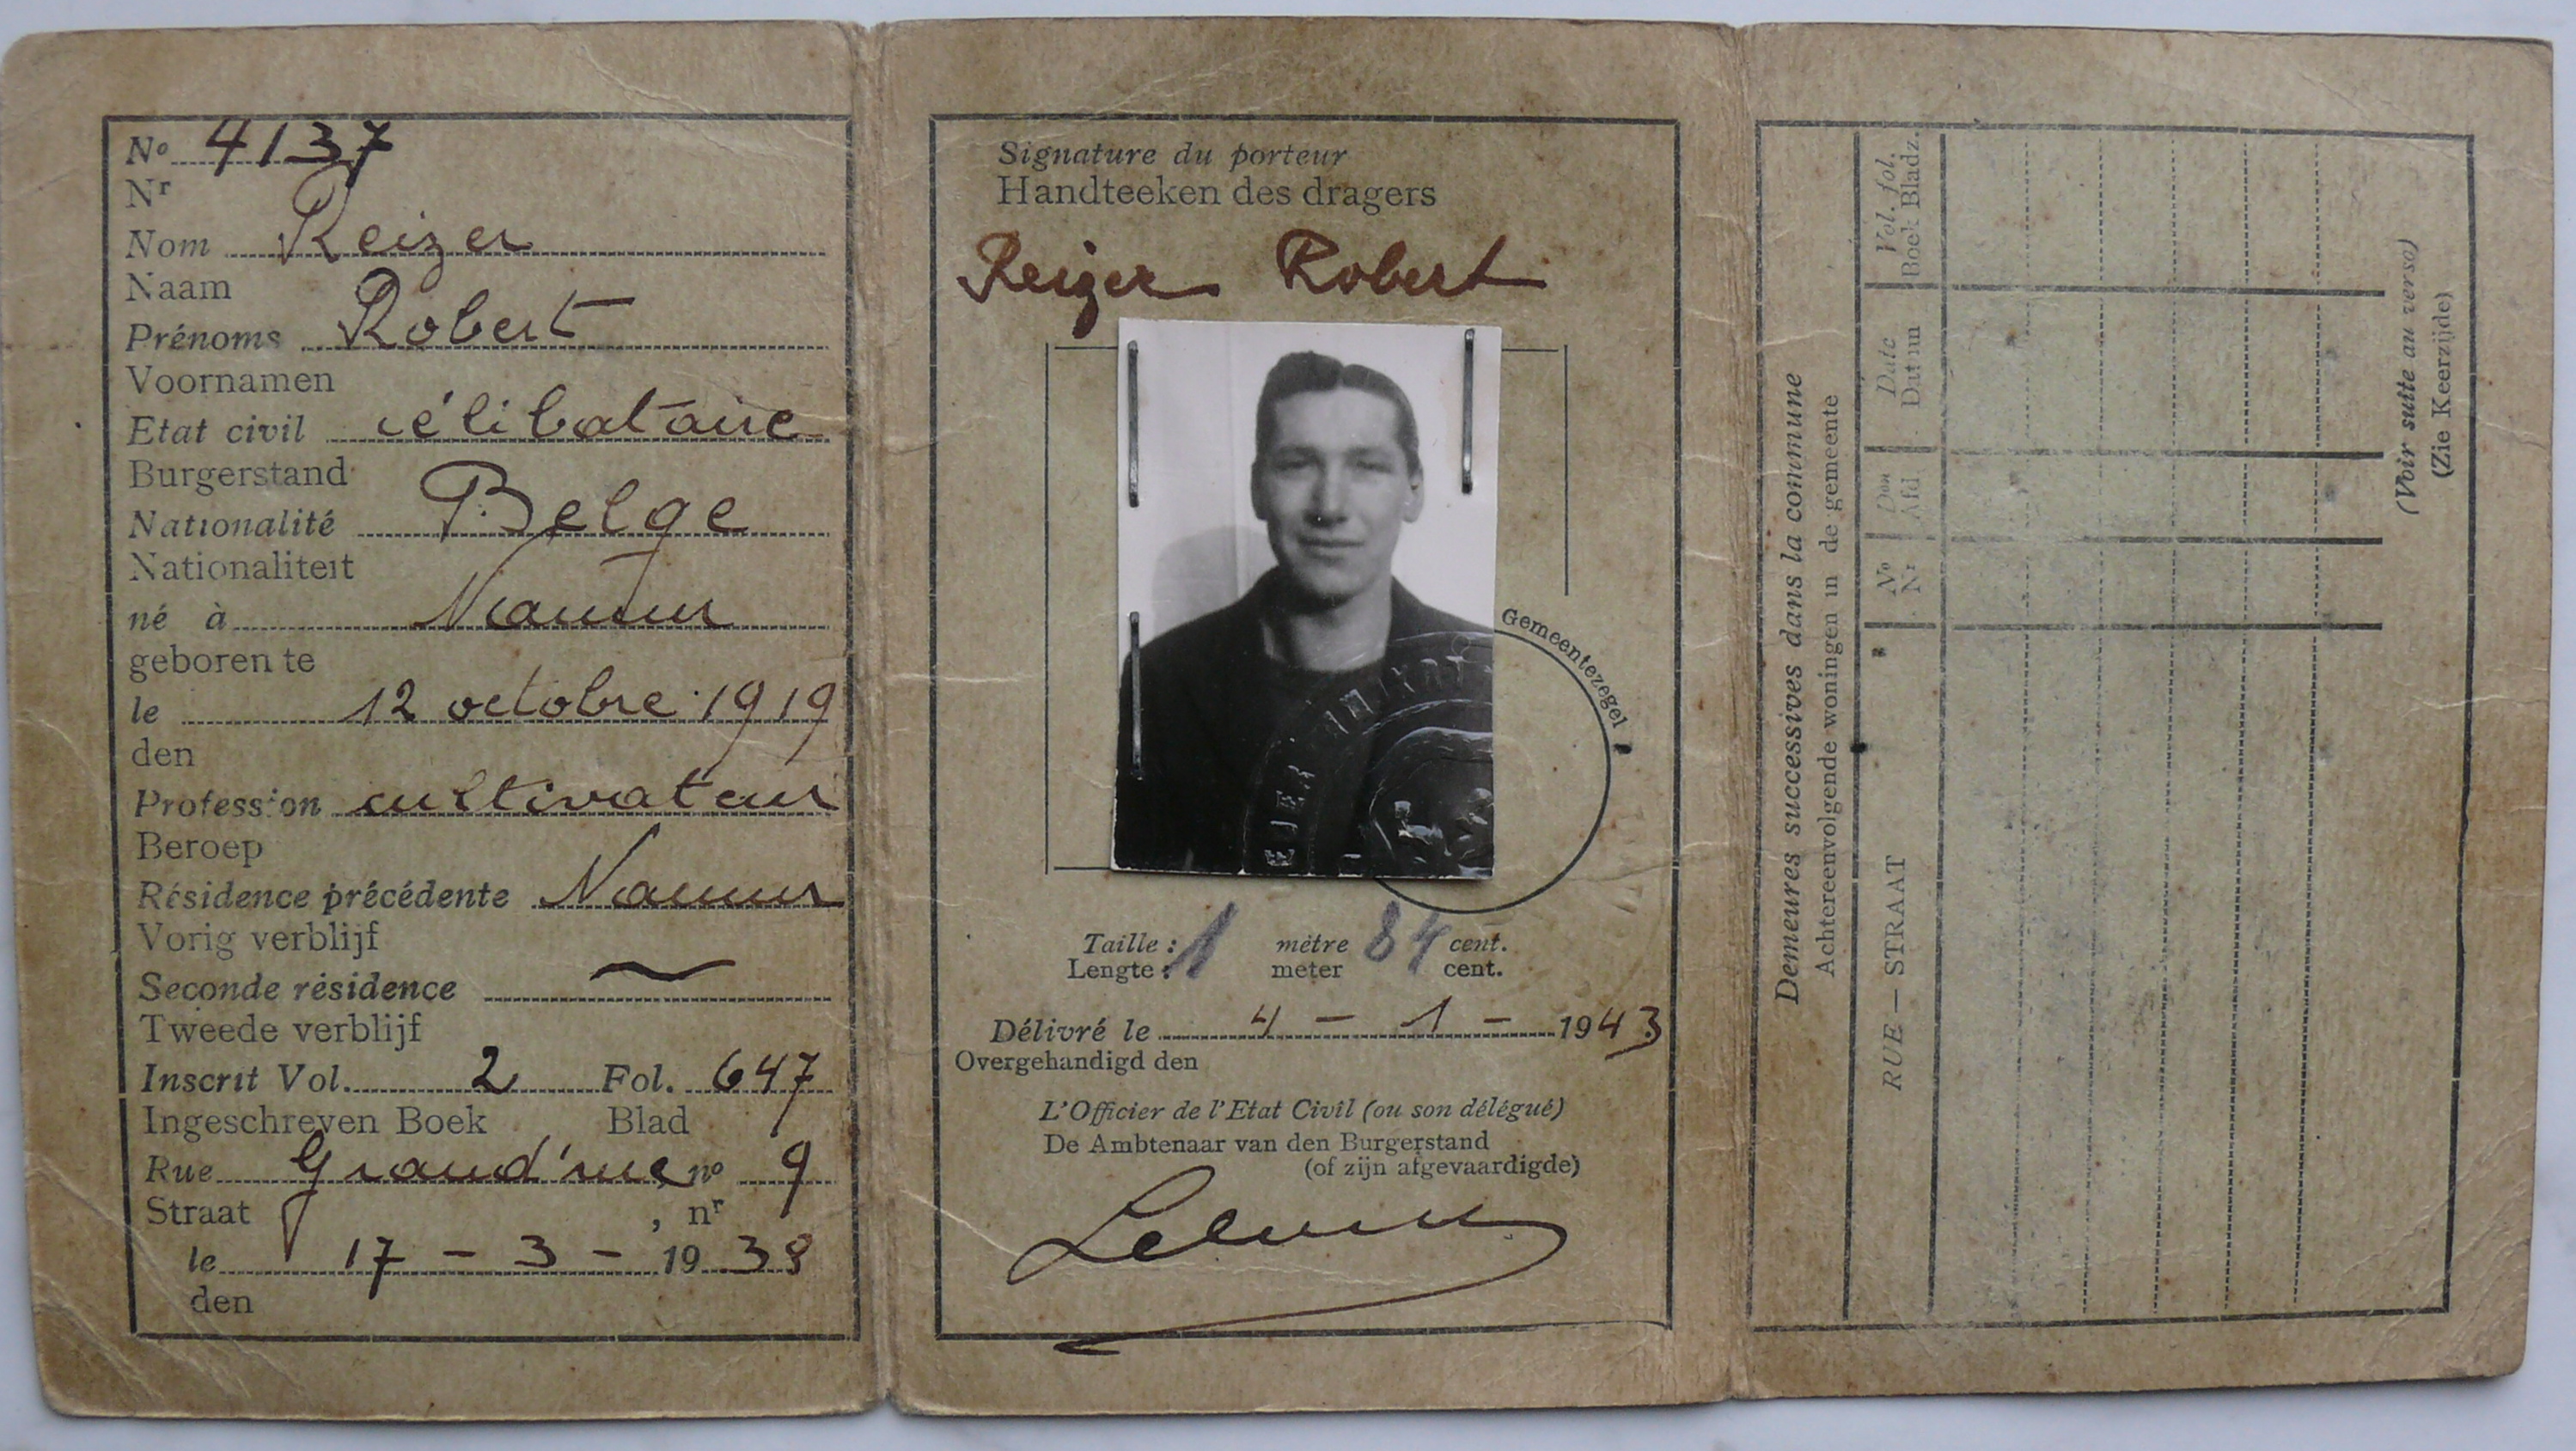 Nº 4137
Nr
Nom Reizer
Naam
Prénoms Robert
Voornamen
Etat civil célibataire
Burgerstand
Nationalité Belge
Nationaliteit
né à Namur
geboren te
le 12 octobre 1919
den
Profession cultivateur
Beroep
Résidence précédente Namur
Vorig verblijf
Seconde résidence ~
Tweede verblijf
Inscrit Vol. 2 Fol. 647
Ingeschreven Boek Blad
Rue Grand'rue nº 9
Straat , nr
le 17 - 3 - 1938
den
Signature du porteur
Handteeken des dragers
Reizer Robert
Gemeentezegel
Taille : 1 mètre 84 cent.
Lengte : meter cent.
Délivré le 4 - 1 - 1943
Overgehandigd den
L'Officier de l'Etat Civil (ou son délégué)
De Ambtenaar van den Burgerstand
(of zijn afgevaardigde)
Demeures successives dans la commune
Achtereenvolgende woningen in de gemeente
RUE — STRAAT
Nº
Nr
Afd
Date
Datum
Vol. fol.
Boek Bladz.
(Voir suite au verso)
(Zie Keerzijde)